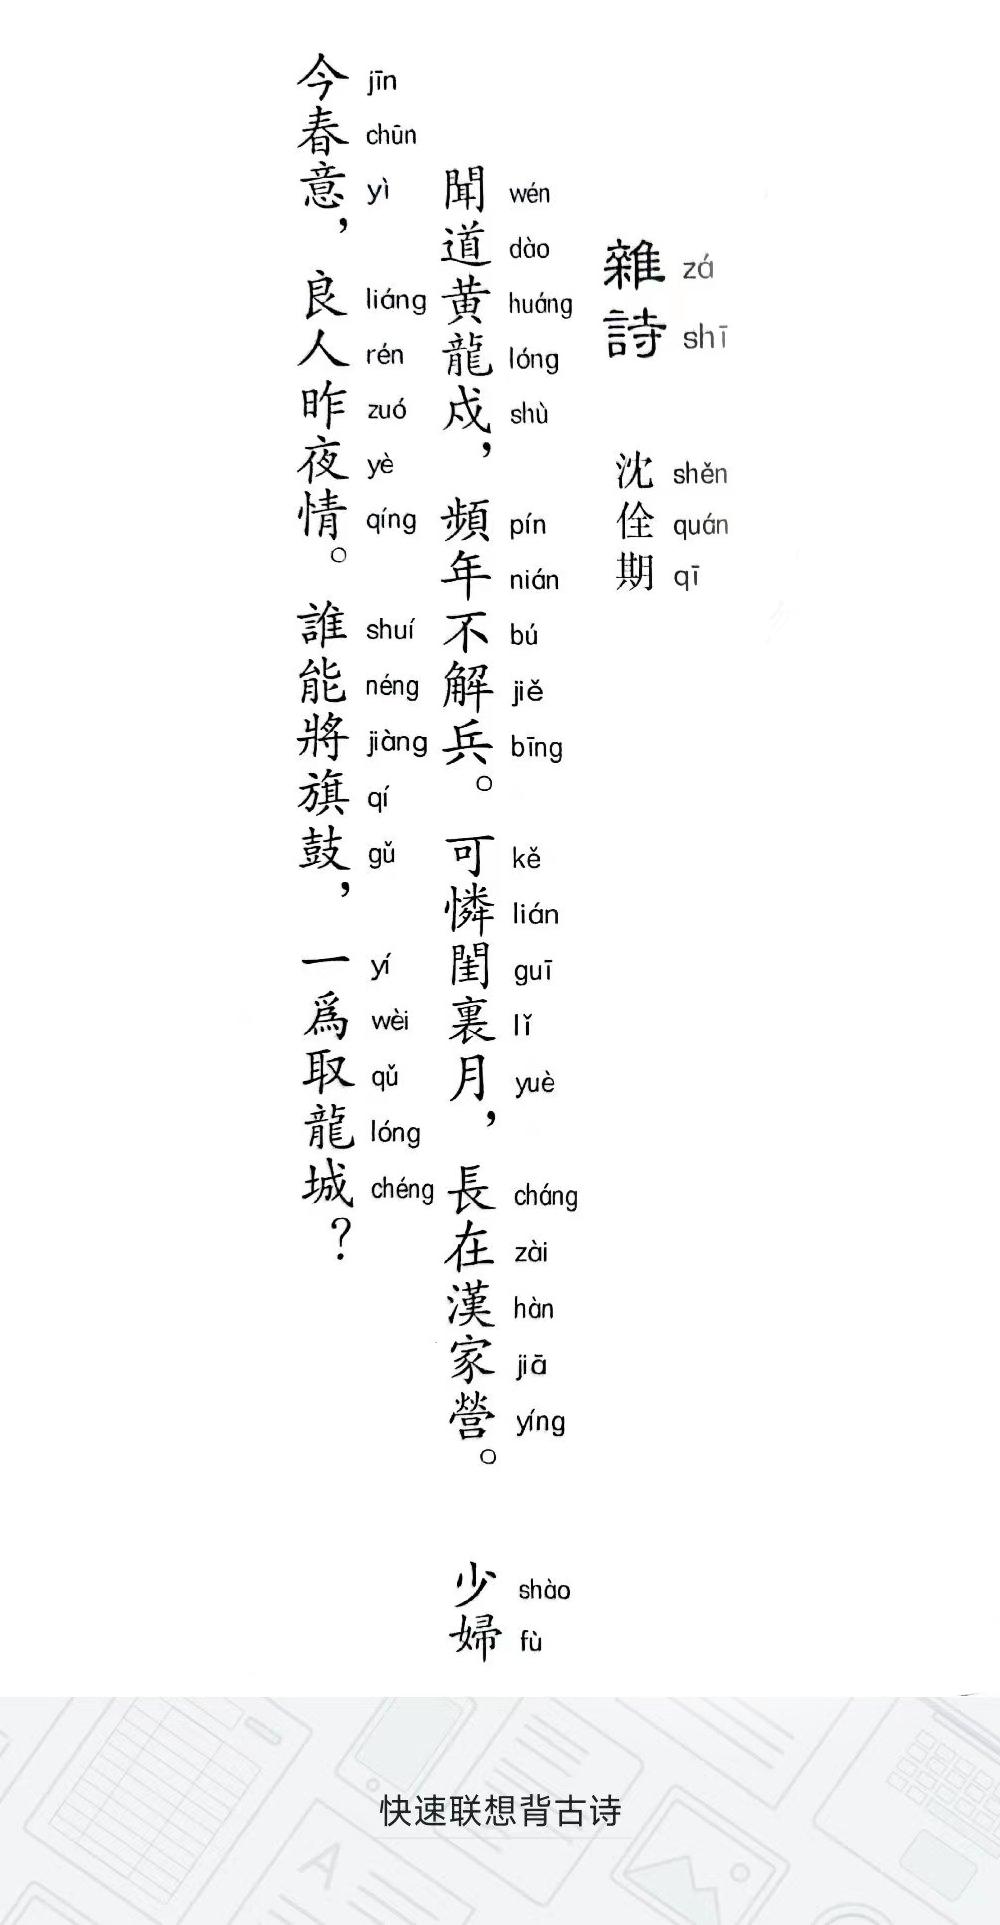 雜詩 zá shī
沈佺期 shěn quán qī
聞道黃龍戍，頻年不解兵。可憐閨裏月，長在漢家營。少婦 wén dào huáng lóng shù pín nián bú jiě bīng kě lián guī lǐ yuè cháng zài hàn jiā yíng shào fù
今春意，良人昨夜情。誰能將旗鼓，一爲取龍城？ jīn chūn yì liáng rén zuó yè qíng shuí néng jiàng qí gǔ yí wèi qǔ lóng chéng
快速联想背古诗